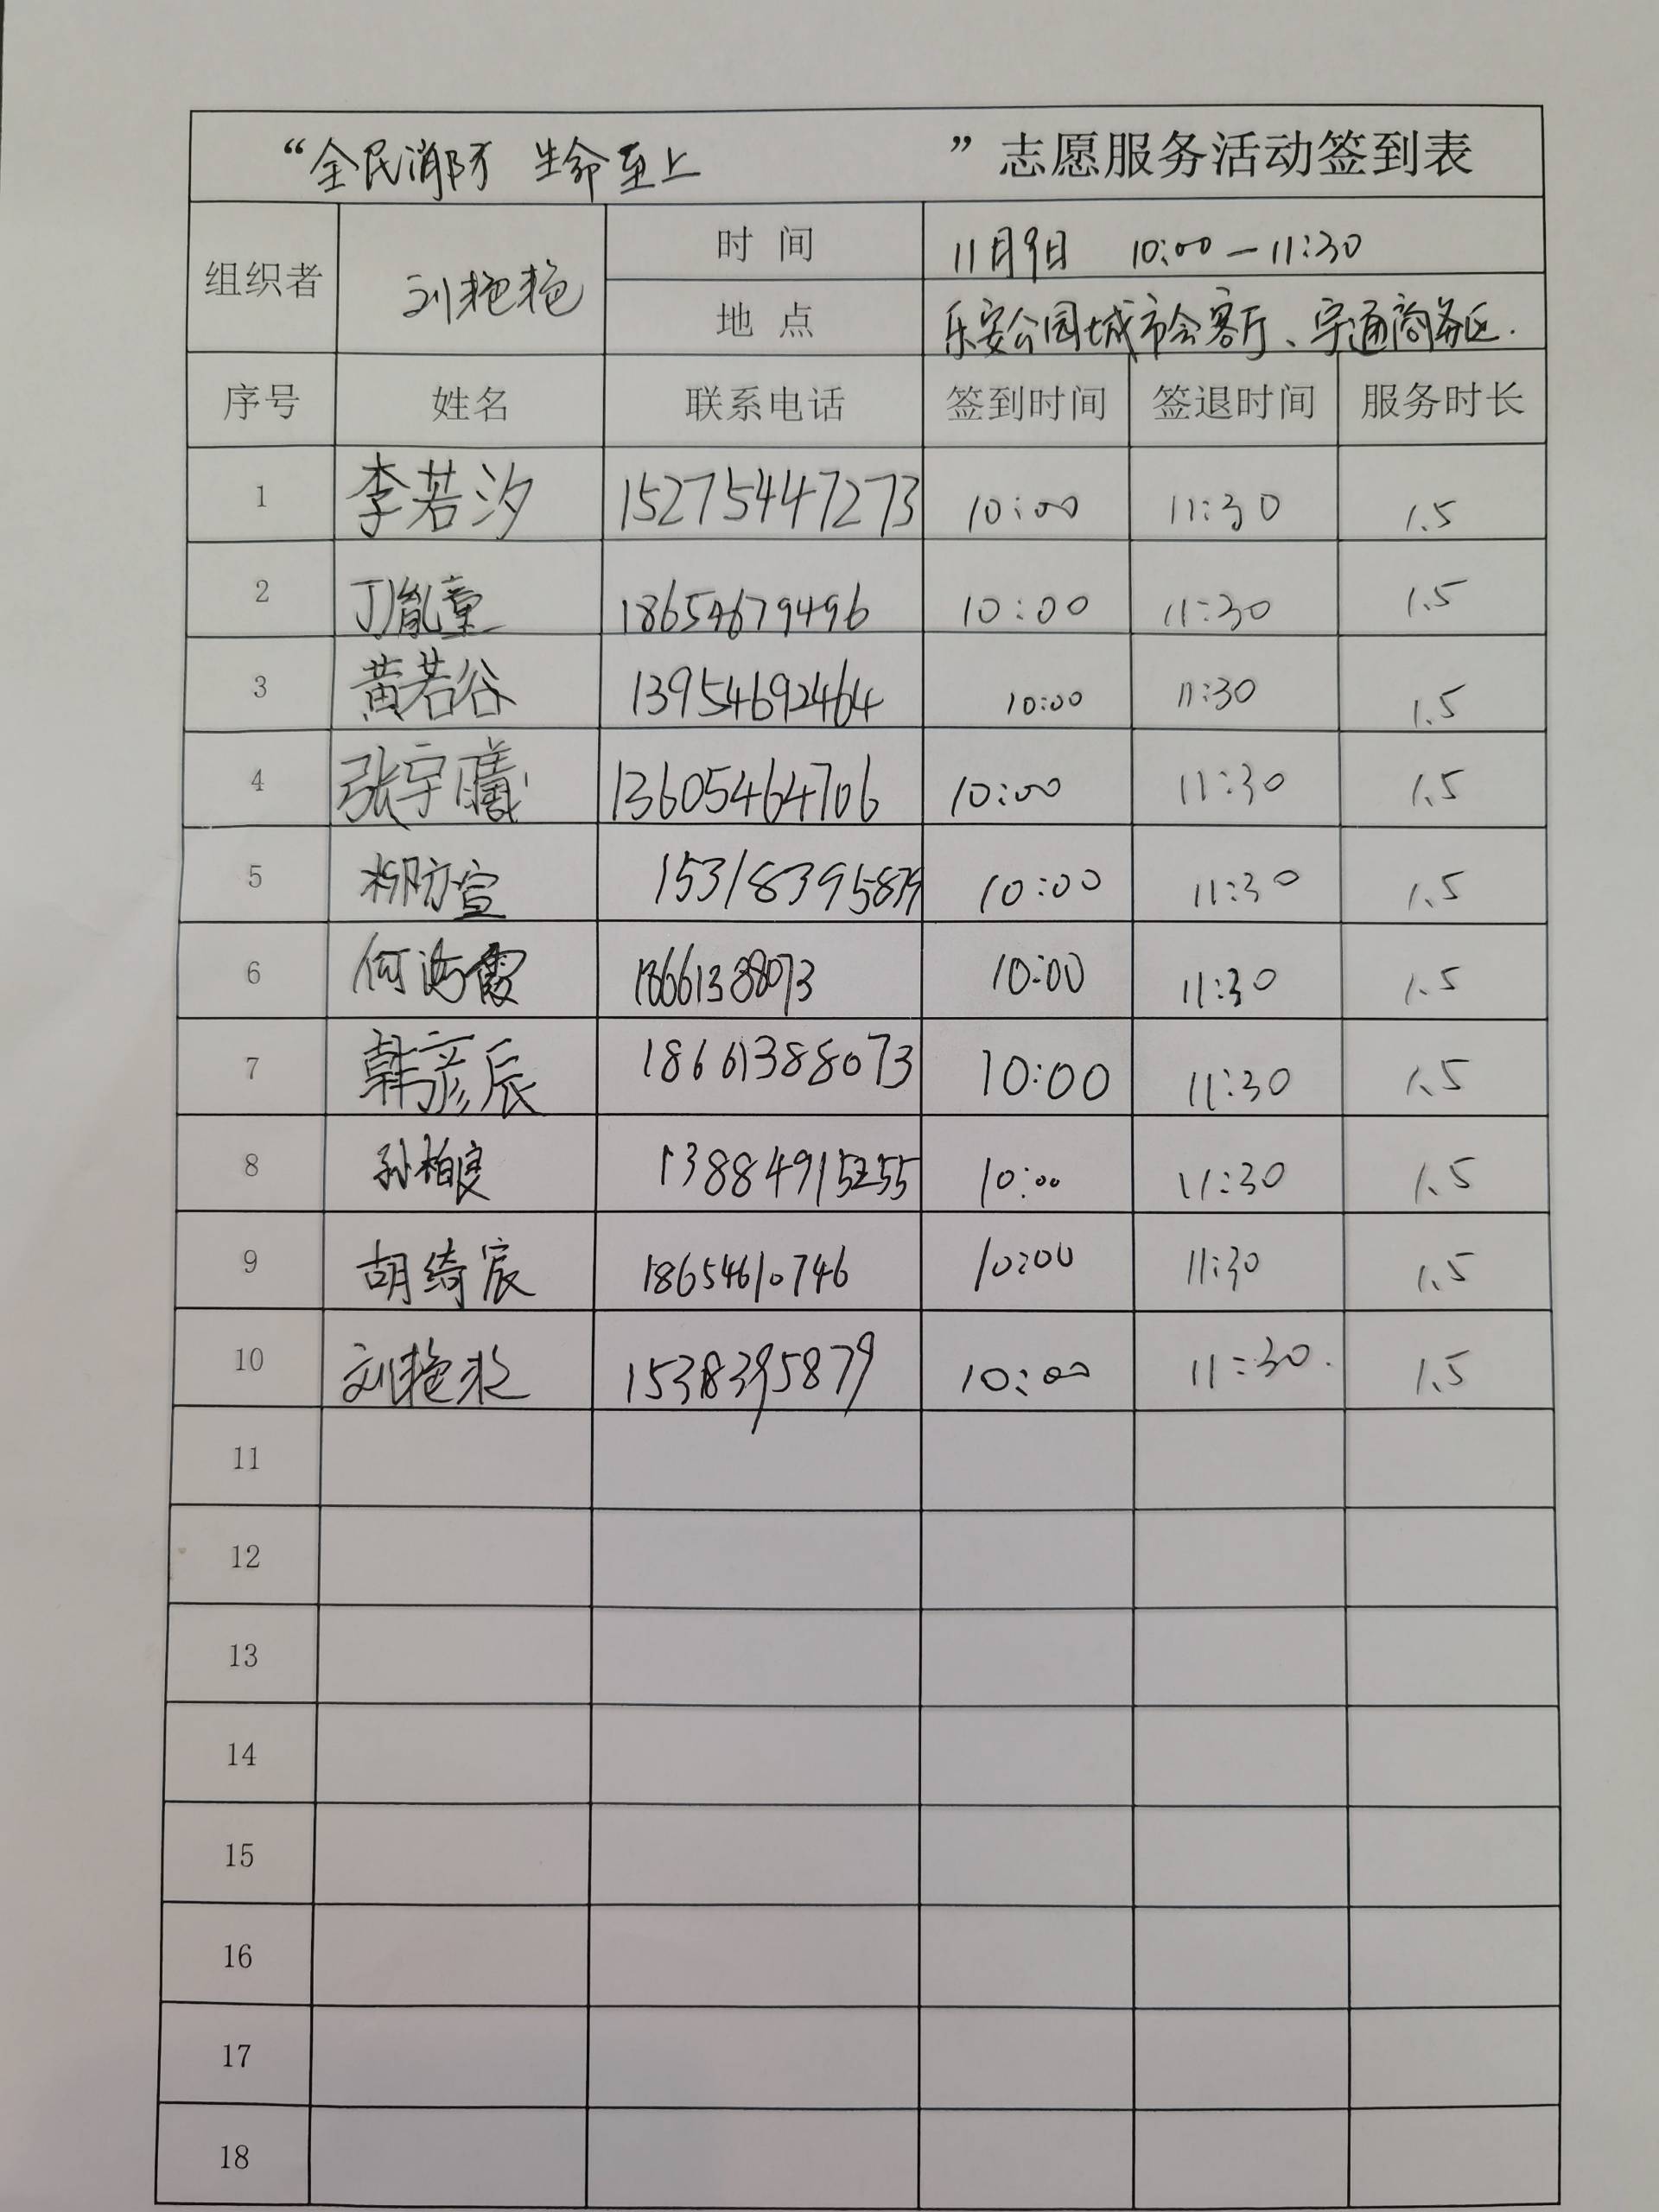 “全民消防 生命至上 ”志愿服务活动签到表
组织者 刘艳艳 时 间 11月9日 10:00—11:30
地 点 乐安公园城市会客厅、宇通商务区.
序号 姓名 联系电话 签到时间 签退时间 服务时长
1 李若汐 15275447273 10:00 11:30 1.5
2 丁胤童 18654679496 10:00 11:30 1.5
3 黄若谷 13954692464 10:00 11:30 1.5
4 张宇曦 13605464706 10:00 11:30 1.5
5 柳昉宣 15318395879 10:00 11:30 1.5
6 何海霞 18661388073 10:00 11:30 1.5
7 韩彦辰 18661388073 10:00 11:30 1.5
8 孙柏良 13884915255 10:00 11:30 1.5
9 胡绮宸 18654610746 10:00 11:30 1.5
10 刘艳艳 15318395879 10:00 11:30. 1.5
11
12
13
14
15
16
17
18